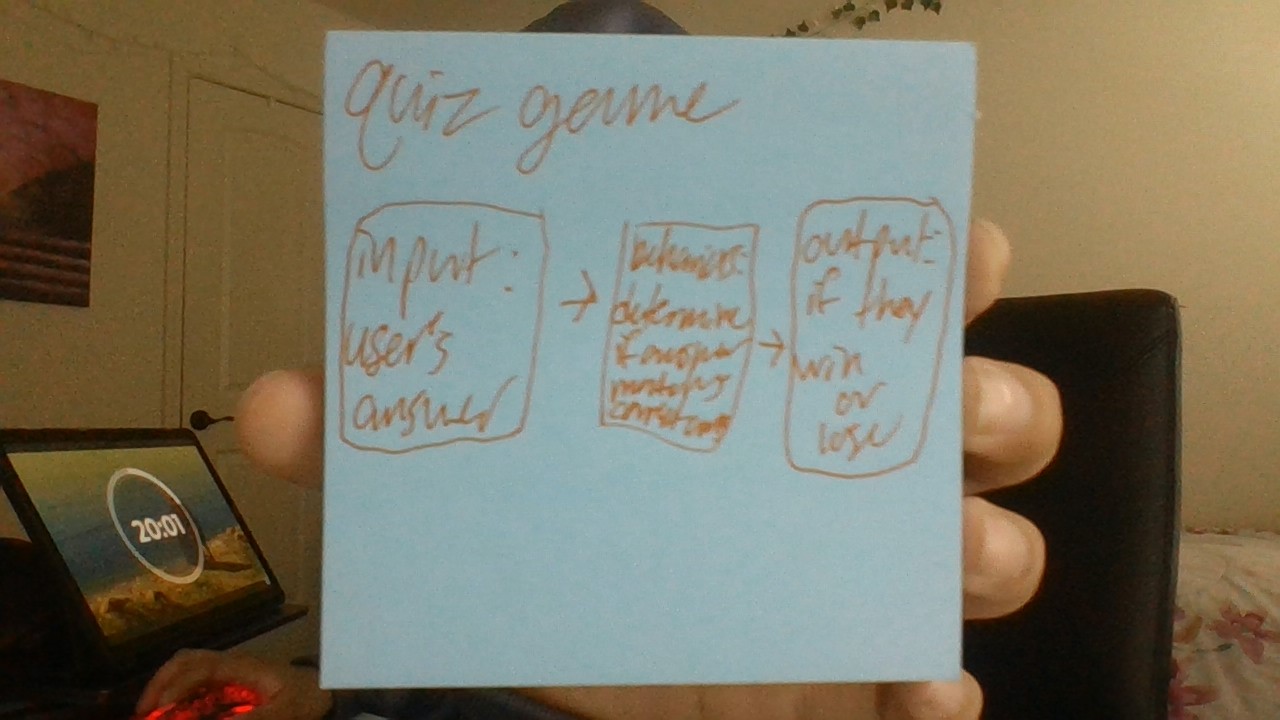 quiz game
input:
user's
answer
→
behaviors:
determine
if answer
matches
→
output:
if they
win
or
lose
20:01